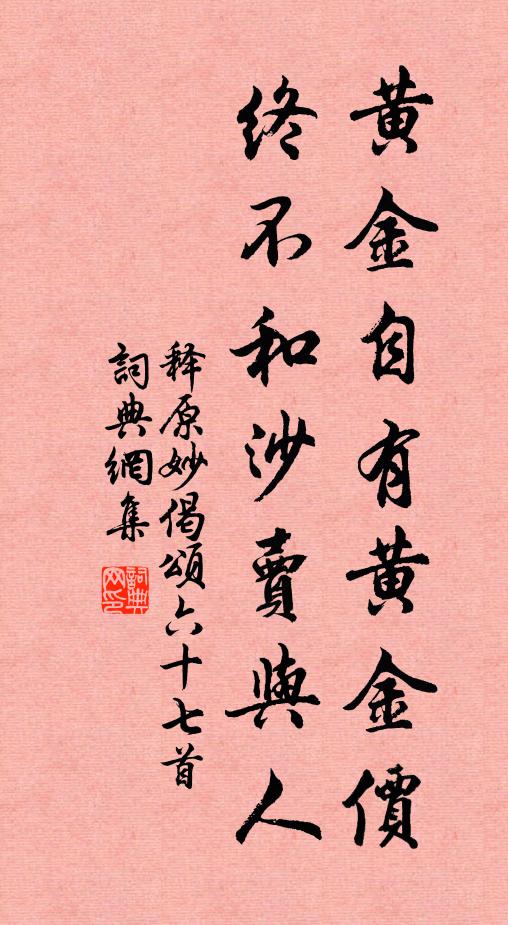 黄金自有黄金價
終不和沙賣與人
释原妙偈頌六十七首
詞典網集
詞典网印